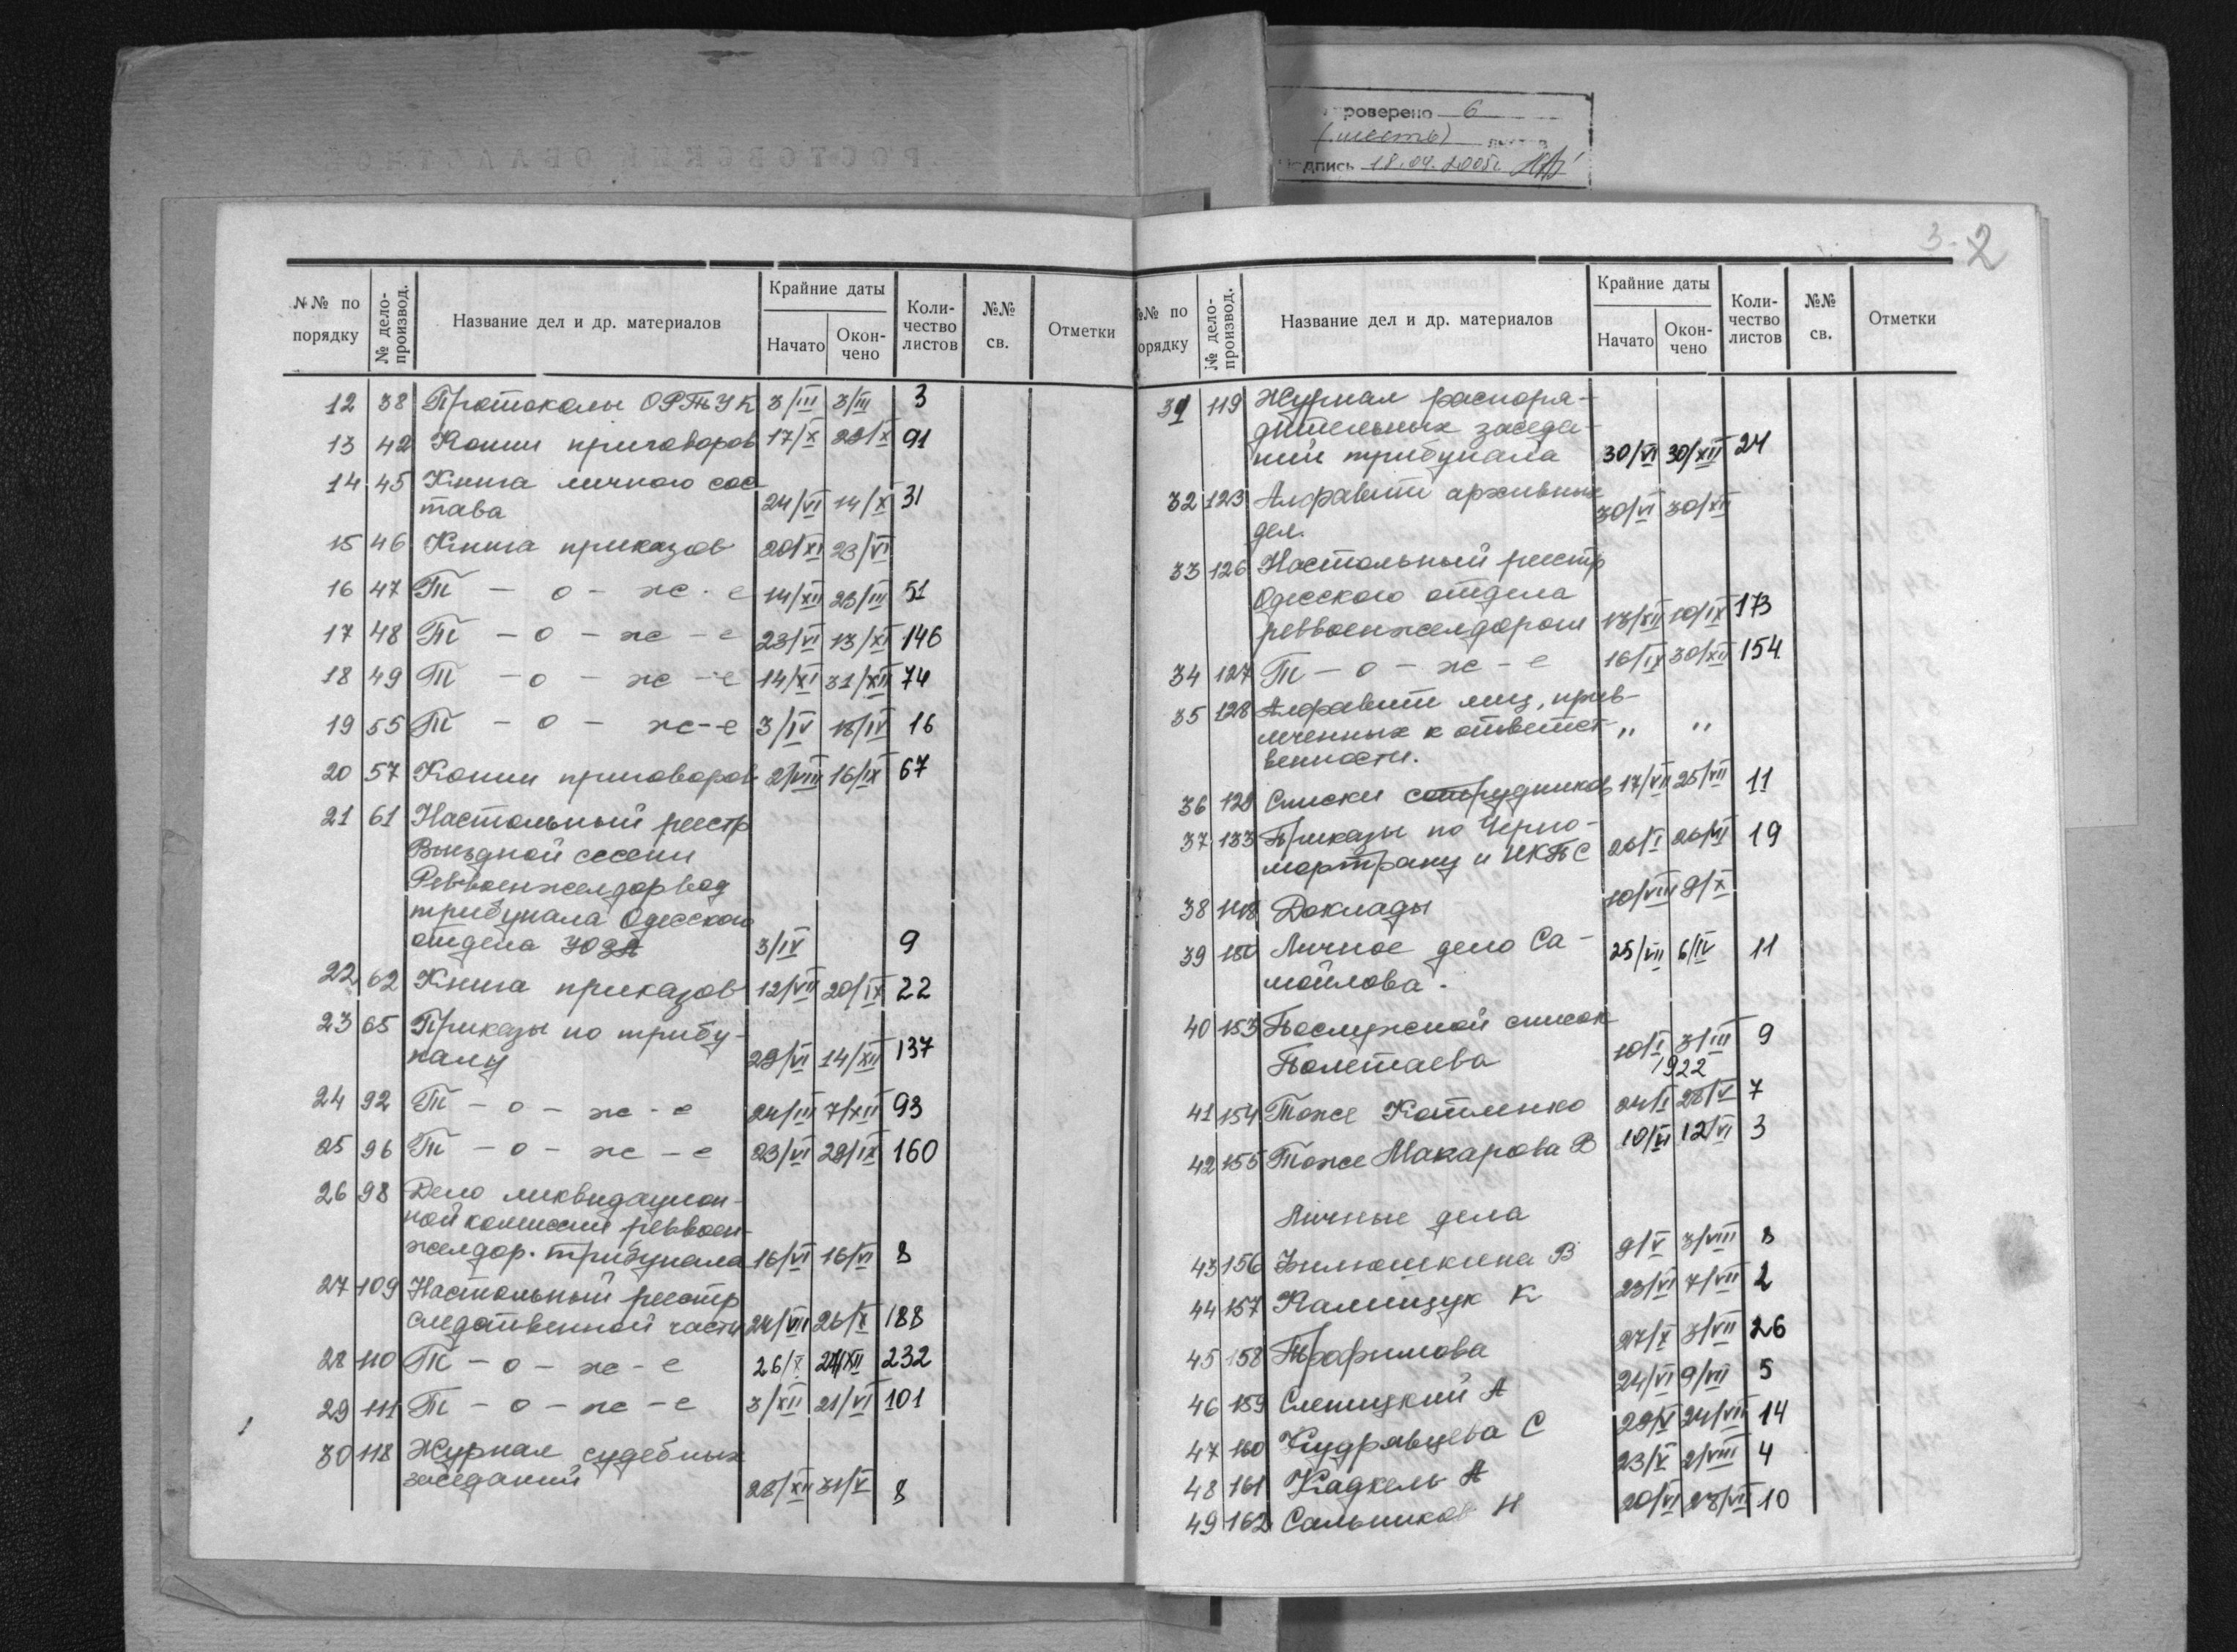 проверено 6
(шесть)
подпись 18.04.2005г.
3 2
№№ по порядку | № дело-производ. | Название дел и др. материалов | Крайние даты | Начато | Окон-чено | Коли-чество листов | №№ св. | Отметки
12 38 Протоколы ОРТЧК 3/III 3/III 3
13 42 Копии приговоров 17/X 23/X 91
14 45 Книга личного сос
тава 24/VI 14/X 31
15 46 Книга приказов 20/XI 23/VI
16 47 Т - о - ж - е 14/XII 23/III 51
17 48 Т - о - ж - е 23/VI 13/XI 146
18 49 Т - о - ж - е 14/XI 31/XII 74
19 55 Т - о - ж - е 3/IV 18/IV 16
20 57 Копии приговоров 2/VIII 16/IX 67
21 61 Настольный реестр
Выездной сессии
Реввоенжелдорвод
трибунала Одесского
отдела ЮЗА 3/IV 9
22 62 Книга приказов 12/VII 20/IX 22
23 65 Приказы по трибу-
налу 29/VI 14/XII 137
24 92 Т - о - ж - е 24/III 7/XII 93
25 96 Т - о - ж - е 23/VI 29/IX 160
26 98 Дело ликвидацион-
ной комиссии реввоен-
желдор. трибунала 16/VI 16/VI 8
27 109 Настольный реестр
следственной части 24/VII 26/X 188
28 110 Т - о - ж - е 26/X 24/XII 232
29 111 Т - о - ж - е 3/XII 21/VI 101
30 118 Журнал судебных
заседаний 28/XII 31/V 8
№№ по порядку | № дело-производ. | Название дел и др. материалов | Крайние даты | Начато | Окон-чено | Коли-чество листов | №№ св. | Отметки
31 119 Журнал распоря-
дительных заседа-
ний трибунала 30/VI 30/XII 24
32 123 Алфавит архивных 30/VI 30/XII
дел.
33 126 Настольный реестр
Одесского отдела
реввоенжелдором 13/XII 10/IX 173
34 127 Т - о - ж - е 16/IX 30/XII 154
35 128 Алфавит лиц, прив-
леченных к ответст- " "
венности.
36 129 Списки сотрудников 17/VII 25/VII 11
37 133 Приказы по Черно-
мортрану и НКПС 26/I 26/VI 19
38 148 Доклады 10/VIII 9/X
39 150 Личное дело Са- 25/VII 6/IV 11
мойлова.
40 153 Послужной список
Полетаева 10/I 3/III 9
1922
41 154 Тоже Котленко 24/I 28/V 7
42 155 Тоже Макарова В 10/VI 12/VI 3
Личные дела
43 156 Зилюшкина В 9/V 3/VIII 8
44 157 Калищук К 23/VI 7/VII 2
45 158 Трофимова 27/X 3/VII 26
46 159 Слепицкий А 24/VI 9/VII 5
47 160 Кудрявцева С 29/V 24/VII 14
48 161 Кадкель А 23/V 2/VIII 4
49 162 Сальников Н 20/VI 28/VI 10